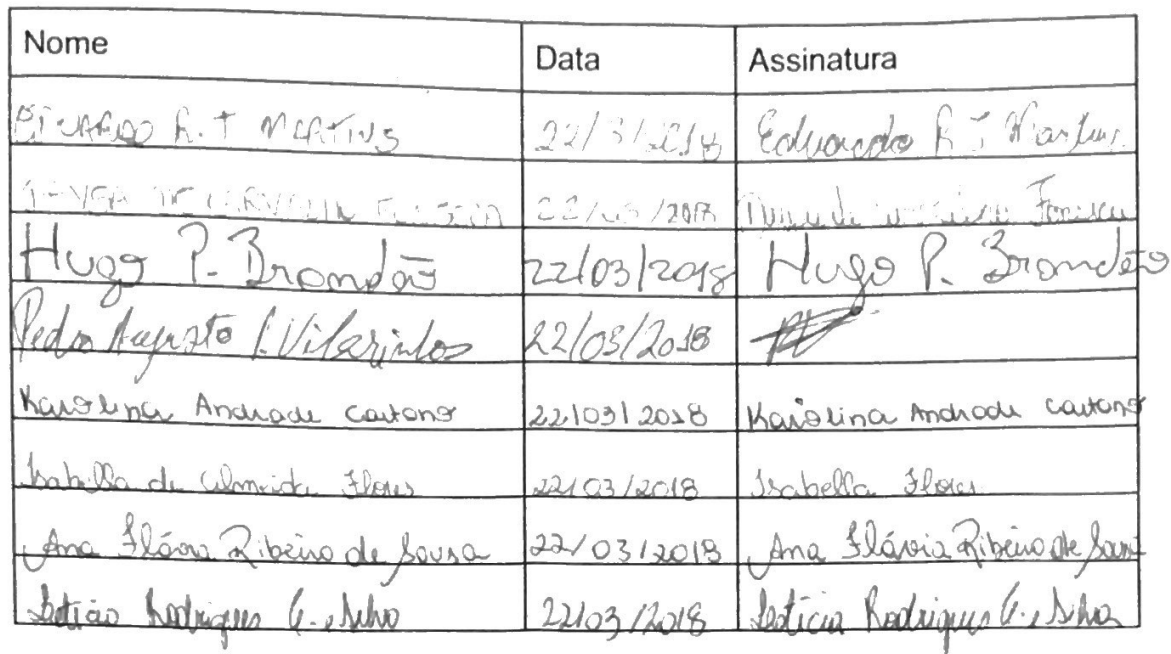 Nome Data Assinatura
EDUARDO R. T MARTINS 22/3/2018 Eduardo R T Martins
DE CARVALHO FONSECA 22/03/2018 de Fonseca
Hugo P. Brandão 22/03/2018 Hugo P. Brandão
Pedro Augusto Vilarinhos 22/03/2018
Karolina Andrade Caetano 22/03/2018 Karolina Andrade Caetano
Isabella de Almeida Flores 22/03/2018 Isabella Flores
Ana Flávia Ribeiro de Sousa 22/03/2018 Ana Flávia Ribeiro de Sousa
Letícia Rodrigues Silva 22/03/2018 Letícia Rodrigues Silva